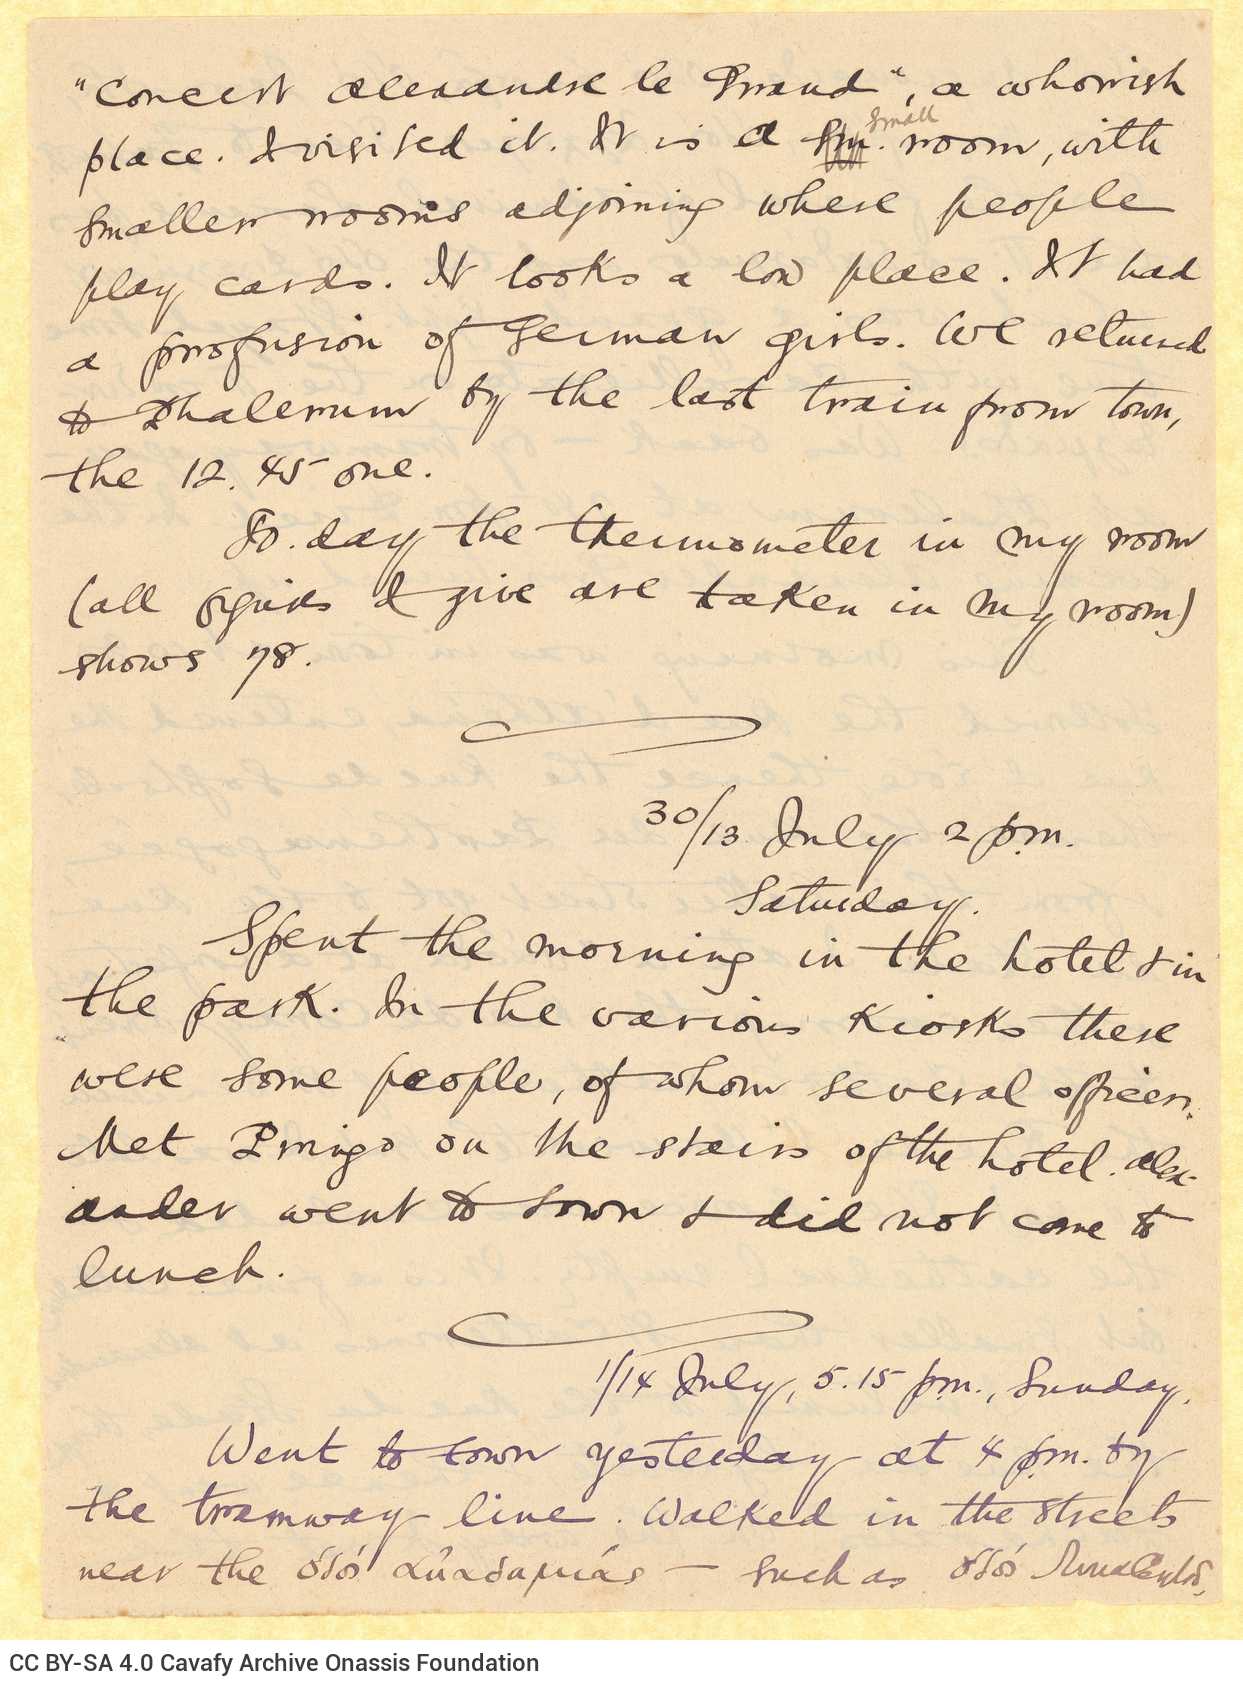 "Concert Alexandre le Grand", a whorish
place. I visited it. It is a small room, with
smaller rooms adjoining where people
play cards. It looks a low place. It had
a profusion of German girls. We returned
to Phalerum by the last train from town,
the 12.45 one.
To-day the thermometer in my room
(all figures I give are taken in my room)
shows 78.
30/13 July 2 p.m.
Saturday.
Spent the morning in the hotel & in
the park. In the various Kiosks there
were some people, of whom several officers.
Met Pringo on the stairs of the hotel. Alex-
ander went to town & did not come to
lunch.
1/14 July, 5.15 p.m., Sunday.
Went to town yesterday at 4 p.m. by
the tramway line. Walked in the streets
near the ὁδό Ἀκαδημίας — such as ὁδό
CC BY-SA 4.0 Cavafy Archive Onassis Foundation